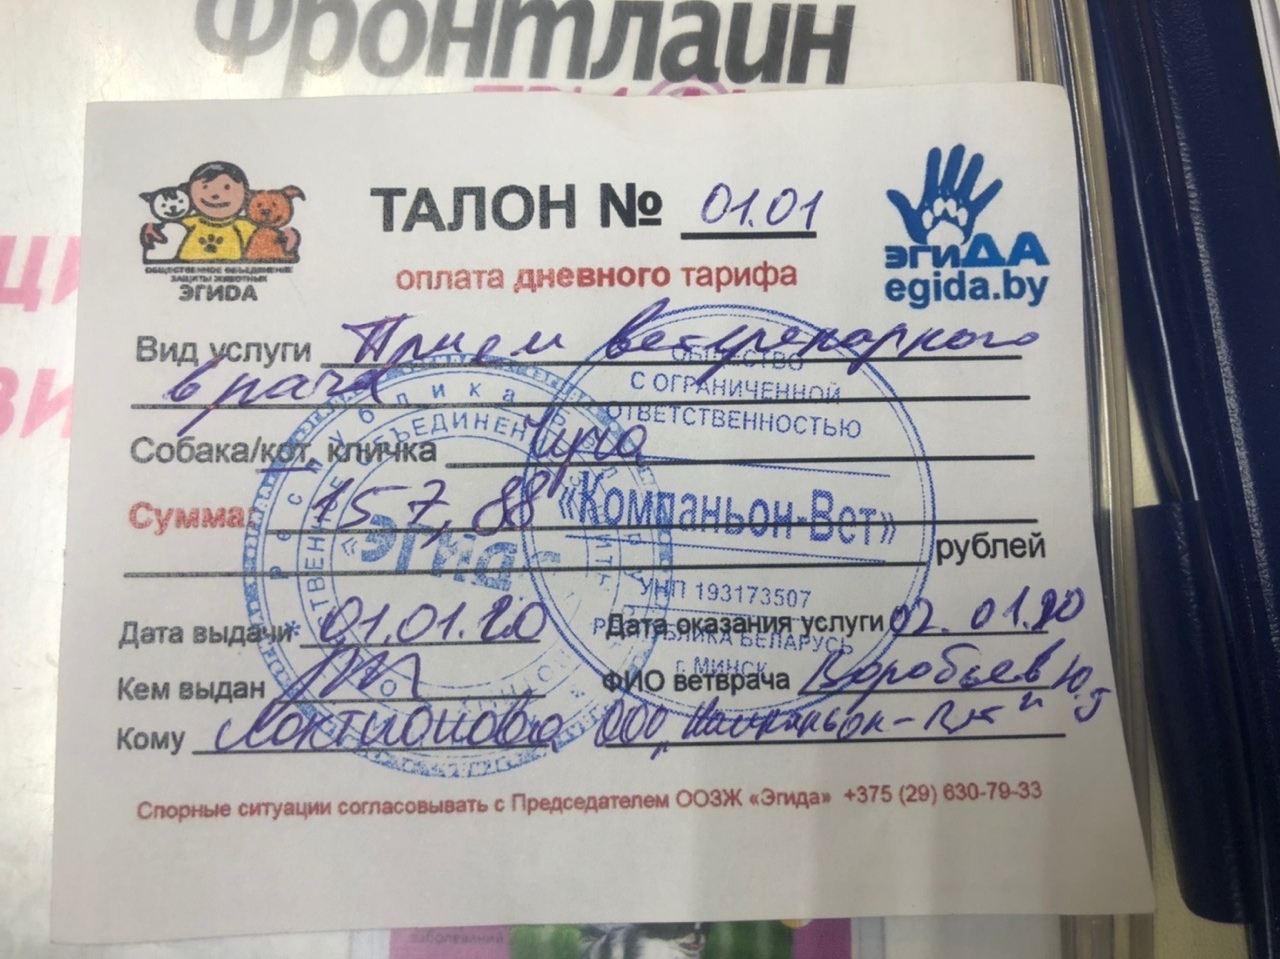 Фронтлайн
ТАЛОН № 01.01
оплата дневного тарифа
ОБЩЕСТВЕННОЕ ОБЪЕДИНЕНИЕ
ЗАЩИТЫ ЖИВОТНЫХ
ЭГИДА
эгиДА
egida.by
Вид услуги Прием ветеренарного
врача
Собака/кот, кличка Чуча
Сумма 157,88
рублей
Дата выдачи 01.01.20 Дата оказания услуги 02.01.20
Кем выдан ФИО ветврача Воробьев Ю
Кому Локтионова ООО "Компаньон-Вет"
Спорные ситуации согласовывать с Председателем ООЗЖ «Эгида» +375 (29) 630-79-33
ОБЩЕСТВО
С ОГРАНИЧЕННОЙ
ОТВЕТСТВЕННОСТЬЮ
«Компаньон-Вет»
УНП 193173507
РЕСПУБЛИКА БЕЛАРУСЬ
г. МИНСК
«Эгида»
заболеваний